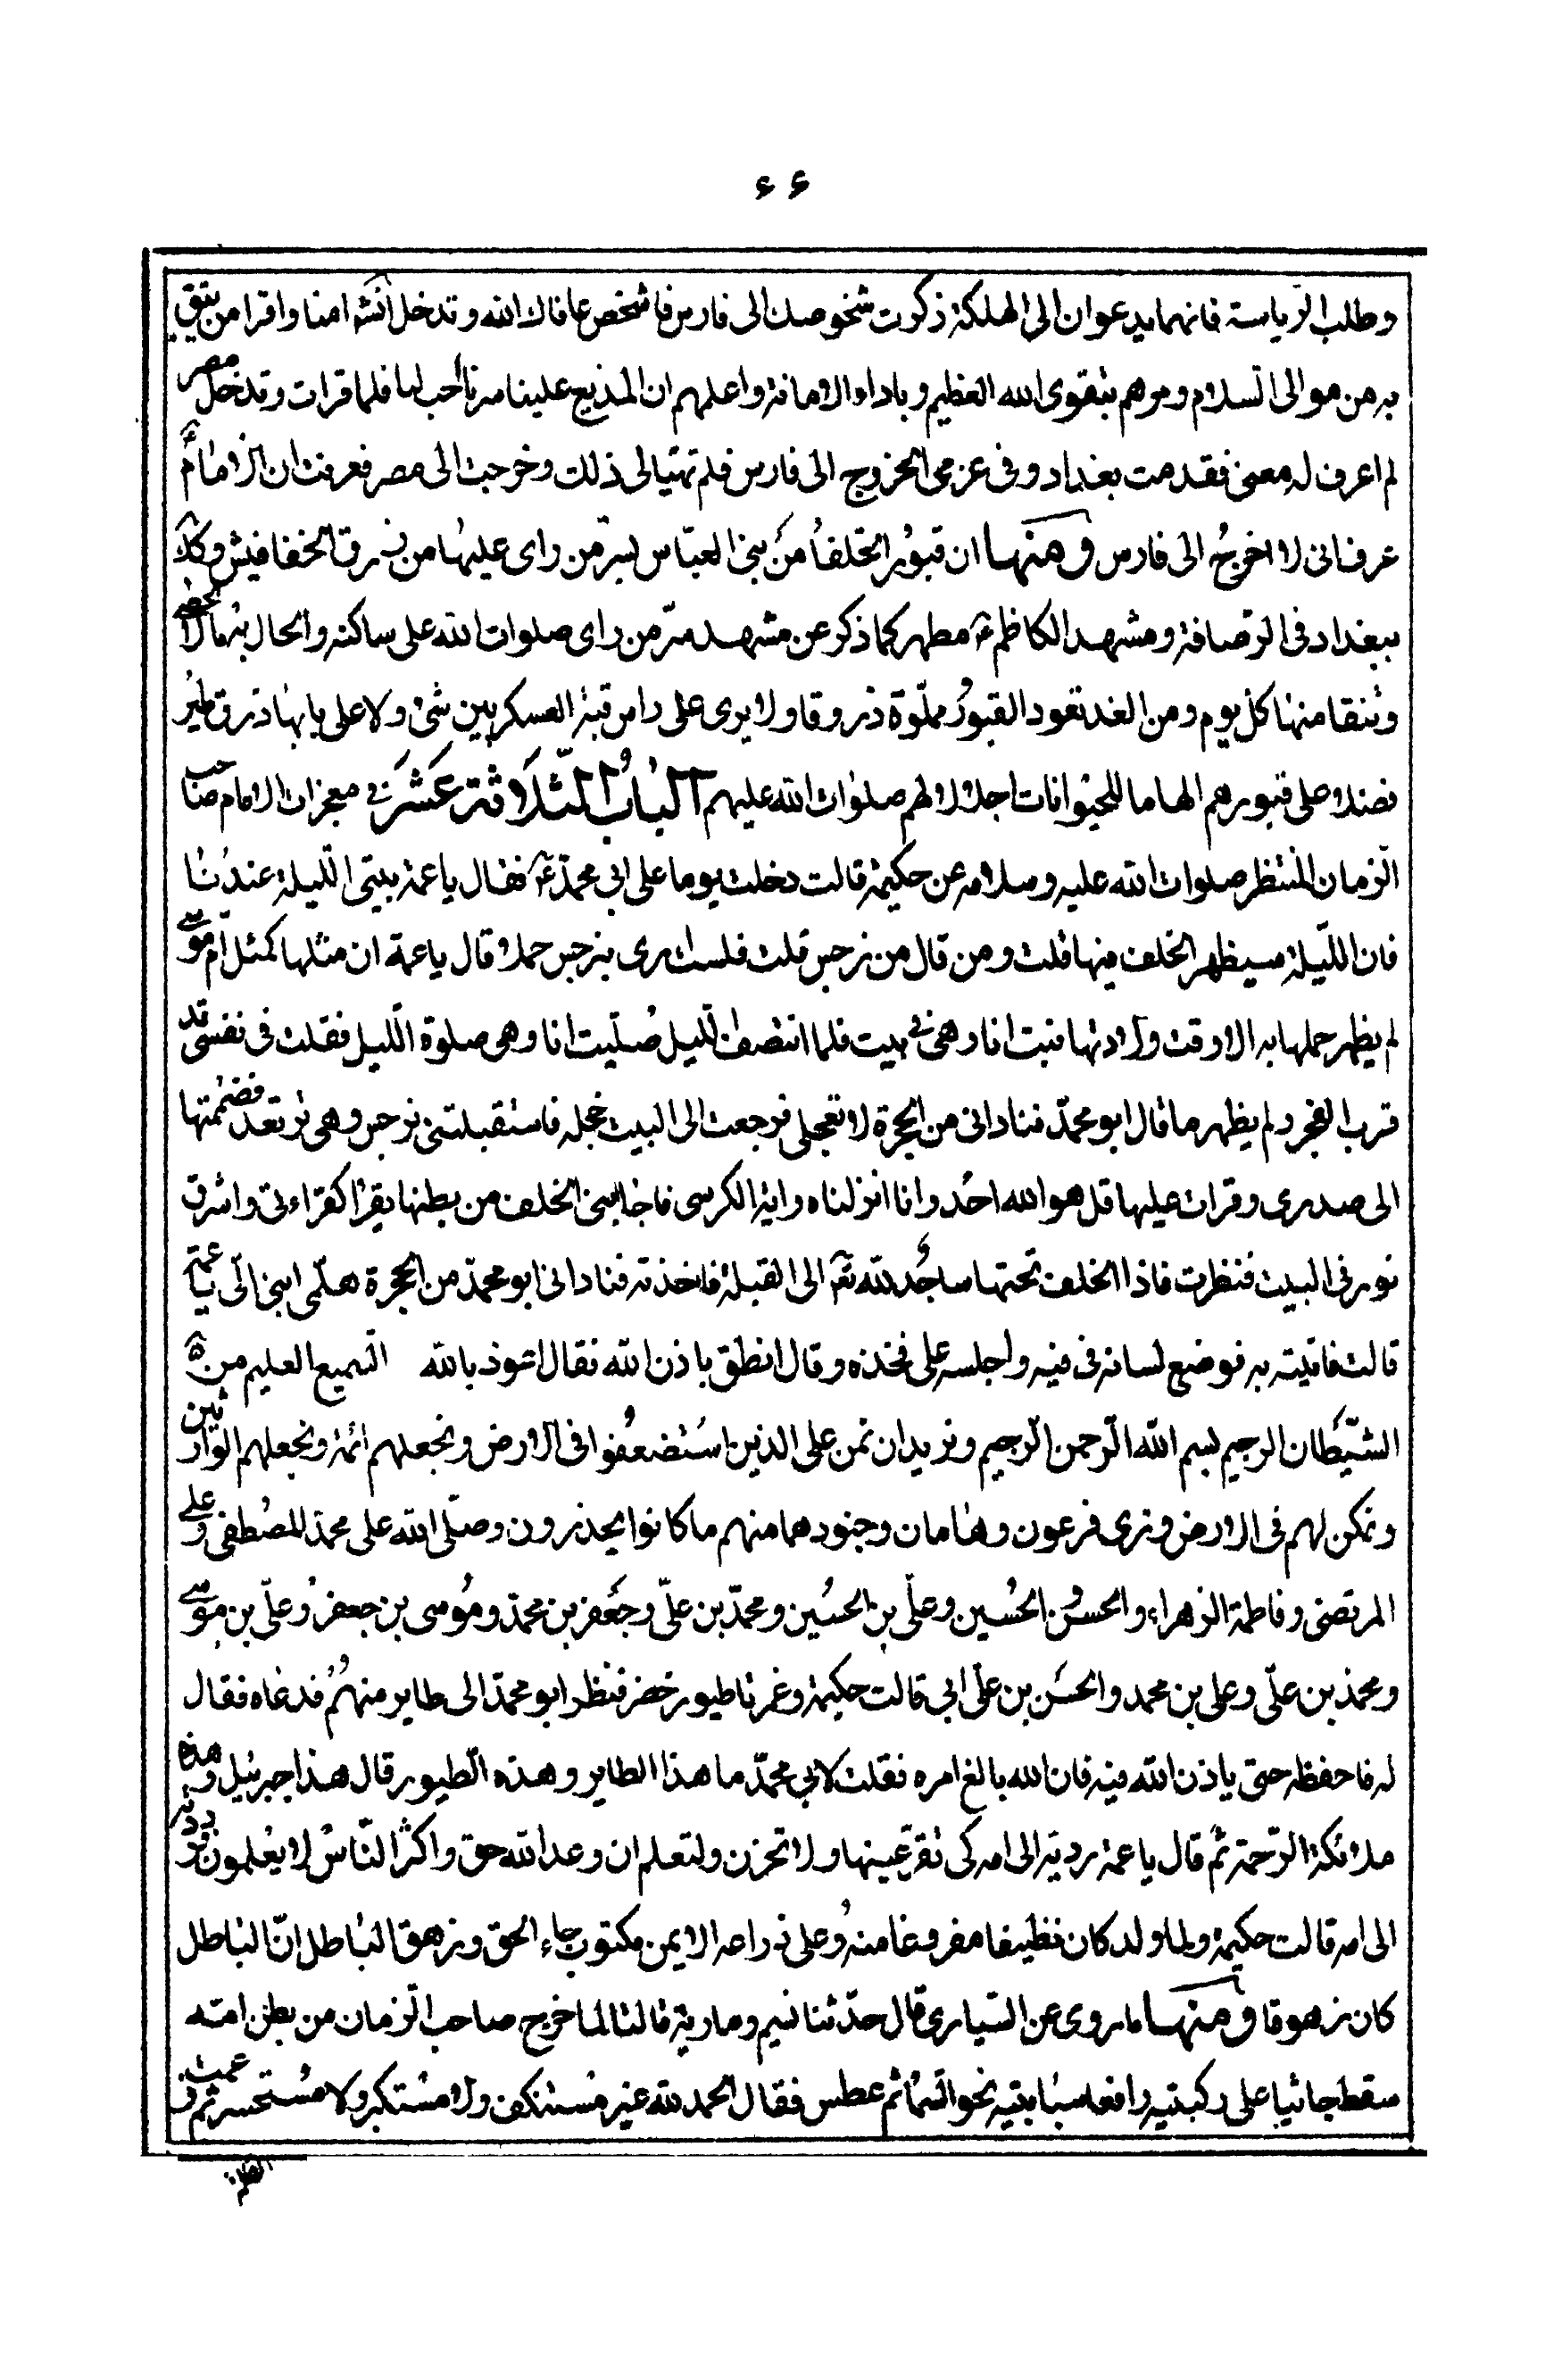 ۶۶
وطلب الرّياسة فانهما يدعوان الى الهلكة ذكرت شخوصك الى فارس فاشخص عافاك الله وتدخل انشه امنا واقرا من يثق
به من موالى السلام ومرهم بتقوى الله العظيم وباداء الامانة واعلمهم ان المذيع علينا سرنا حرب لنا فلما قرات وتدخل مصر
لم اعرف له معنى فقدمت بغداد وفى عزمى الخروج الى فارس فلم تهيّا لى ذلك وخرجت الى مصر فعرفت ان الامام ع
عرف انى لا اخرج الى فارس ومنها ان قبور الخلفا من بنى العباس بسرّ من راى عليها من ذرق الخفافيش وكذا
ببغداد فى الرّصافة ومشهد الكاظم ع مطهر كما ذكر عن مشهد سرّ من راى صلوات الله على ساكنه والحال بهما
وتنقا منها كل يوم ومن الغد تعود القبور مملوّة ذروقا ولا يرى على راس قبة العسكريين شئ ولا على بابها ذرق طير
فضلا على قبورهم الهاما للحيوانات اجلالا لهم صلوات الله عليهم الباب الثّلاثة عَشَر فى معجزات الامام صاحب
الزمان المنتظر صلوات الله عليه وسلامه عن حكيمة قالت دخلت يوما على ابى محمّد ع فقال يا عمة بيتى اللّيلة عندنا
فان اللّيلة سيظهر الخلف فيها قلت وممن قال من نرجس قلت فلست ارى بنرجس حملا قال يا عمة ان مثلها كمثل ام موسى
لم يظهر حملها به الا وقت ولادتها فبت انا وهى فى بيت فلما انتصف اللّيل صلّيت انا وهى صلوة اللّيل فقلت فى نفسى قد
قرب الفجر ولم يظهر ما قال ابو محمّد فنادانى من الحجرة لا تعجلى فرجعت الى البيت خجله فاستقبلتنى نرجس وهى ترتعد فضممتها
الى صدرى وقرات عليها قل هو الله احد وانا انزلناه واية الكرسى فاجابنى الخلف من بطنها يقرا كقراءتى واشرق
نور فى البيت فنظرت فاذا الخلف تحتها ساجد لله تع الى القبلة فاخذته فنادانى ابو محمّد من الحجرة هلمّى ابنى الىّ يا عمة
قالت فاتيته به فوضع لسانه فى فيه واجلسه على فخذه وقال انطق باذن الله فقال اعوذ بالله السميع العليم من
الشّيطان الرجيم بسم الله الرّحمن الرّحيم ونريد ان نمن على الذين استضعفوا فى الارض ونجعلهم ائمة ونجعلهم الوارثين
ونمكن لهم فى الارض ونرى فرعون وهامان وجنودهما منهم ما كانوا يحذرون وصلّى الله على محمد المصطفى وعلى
المرتضى وفاطمة الزهراء والحسن والحسين وعلى بن الحسين ومحمّد بن علىّ وجعفر بن محمّد وموسى بن جعفر وعلىّ بن موسى
ومحمد بن علىّ وعلى بن محمد والحسن بن علىّ ابى قالت حكيمة وغمرتنا طيور خضر فنظر ابو محمّد الى طاير منهم فدعاه فقال
له فاحفظه حتى ياذن الله فيه فان الله بالغ امره فقلت لابى محمّد ما هذا الطاير وهذه الطيور قال هذا جبرئيل وهذه
ملائكة الرّحمة ثم قال يا عمة رديه الى امه كى تقرّ عينها ولا تحزن ولتعلم ان وعد الله حق واكثر النّاس لا يعلمون فرددته
الى امه قالت حكيمة ولما ولد كان نظيفا مفروغا منه وعلى ذراعه الايمن مكتوب جاء الحق وزهق الباطل انّ الباطل
كان زهوقا ومنها ما روى عن السّيارى قال حدّثتنا نسيم ومارية قالتا لما خرج صاحب الزمان من بطن امّه
سقط جاثيا على ركبتيه رافعا سبابتيه نحو السّما ثم عطس فقال الحمد لله غير مستنكف ولا مستكبر ولا مستحسر ثم